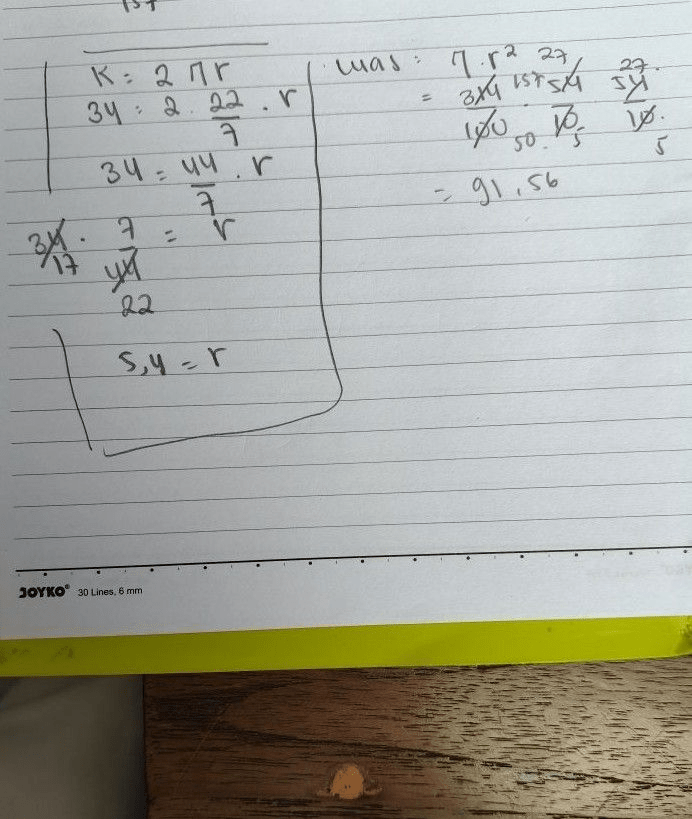 157
K = 2 π r
34 = 2 . 22/7 . r
34 = 44/7 . r
34 . 7/44 = r
17 22
5,4 = r
Luas : π . r²
27 27
= 314/100 . 54/10 . 54/10
157 50 . 5 5
= 91,56
JOYKO® 30 Lines, 6 mm